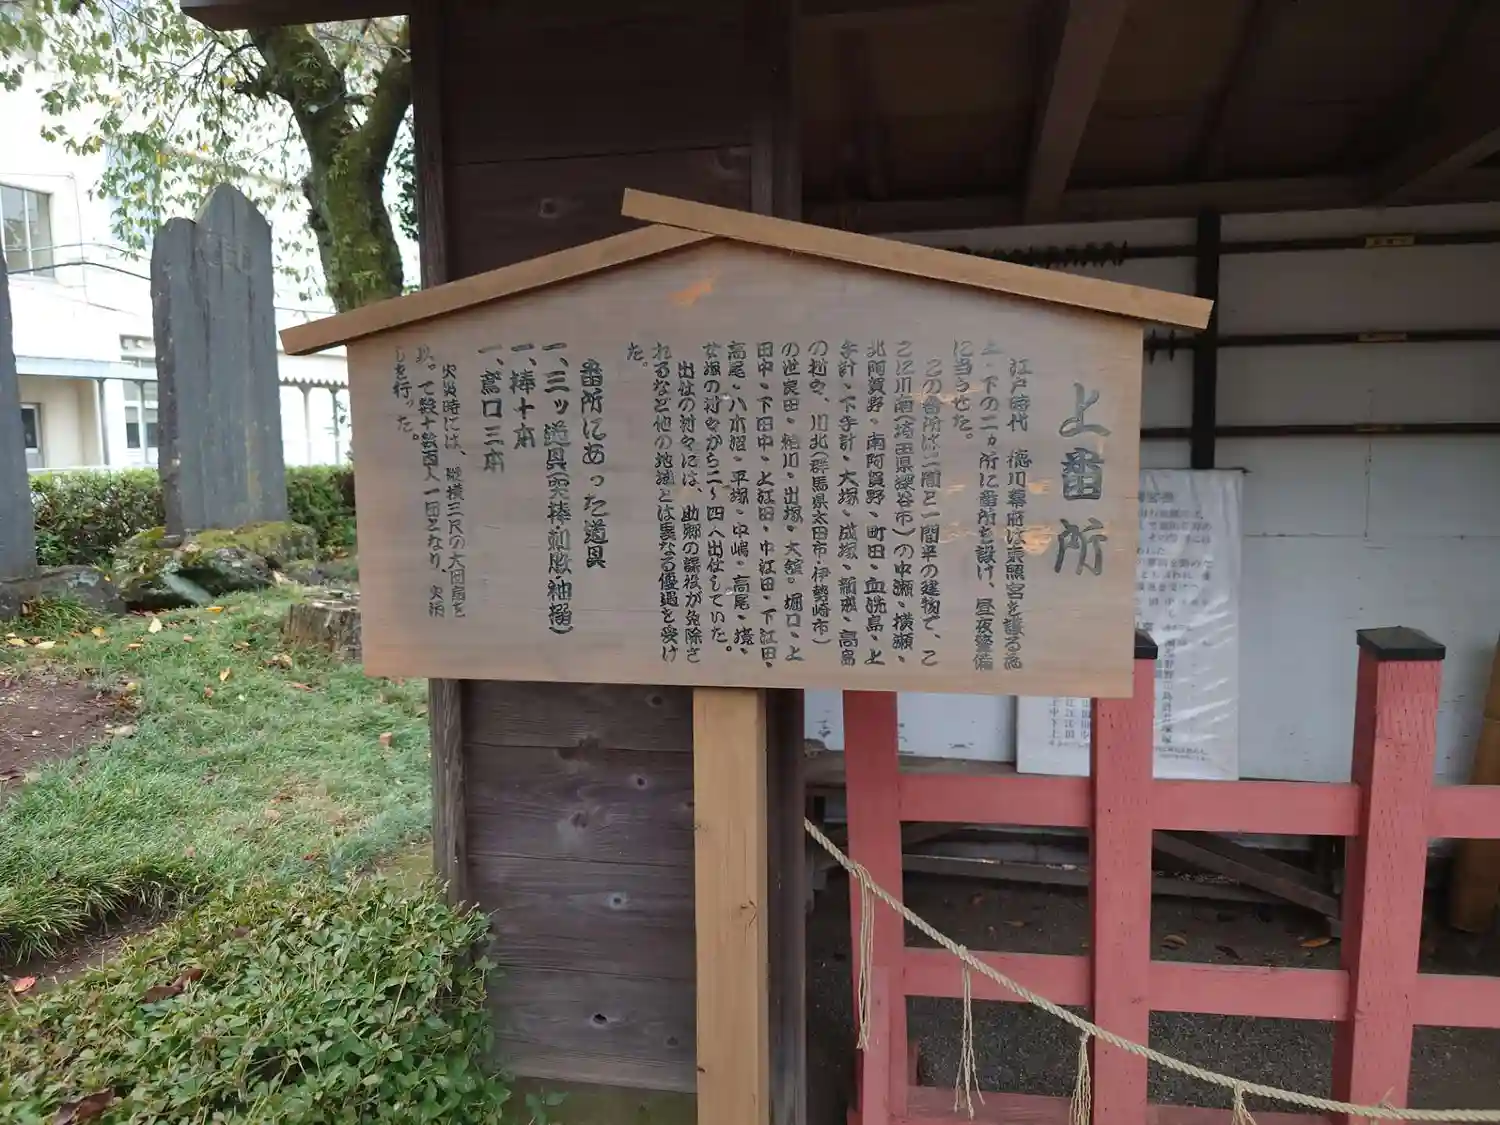 上番所
江戸時代 徳川幕府は東照宮を護る為
上・下の二ヵ所に番所を設け、昼夜警備
に当らせた。
この番所は二間と一間半の建物で、こ
こに川南(埼玉県深谷市)の中瀬・横瀬・
北阿賀野・南阿賀野・町田・血洗島・上
手計・下手計・大塚・成塚・新戒・高島
の村々、川北(群馬県太田市・伊勢崎市)
の世良田・粕川・出塚・大舘・堀口・上
田中・下田中・上江田・中江田・下江田・
高尾・八木沼・平塚・中嶋・高尾・境・
女塚の村々から二〜四人出仕していた。
出仕の村々には、助郷の課役が免除さ
れるなど他の地域とは異なる優遇を受け
た。
番所にあった道具
一、三ッ道具(突棒・刺股・袖搦)
一、棒十本
一、鳶口三本
火災時には、縦横三尺の大団扇を
以って数十数百人一団となり、火消
しを行った。